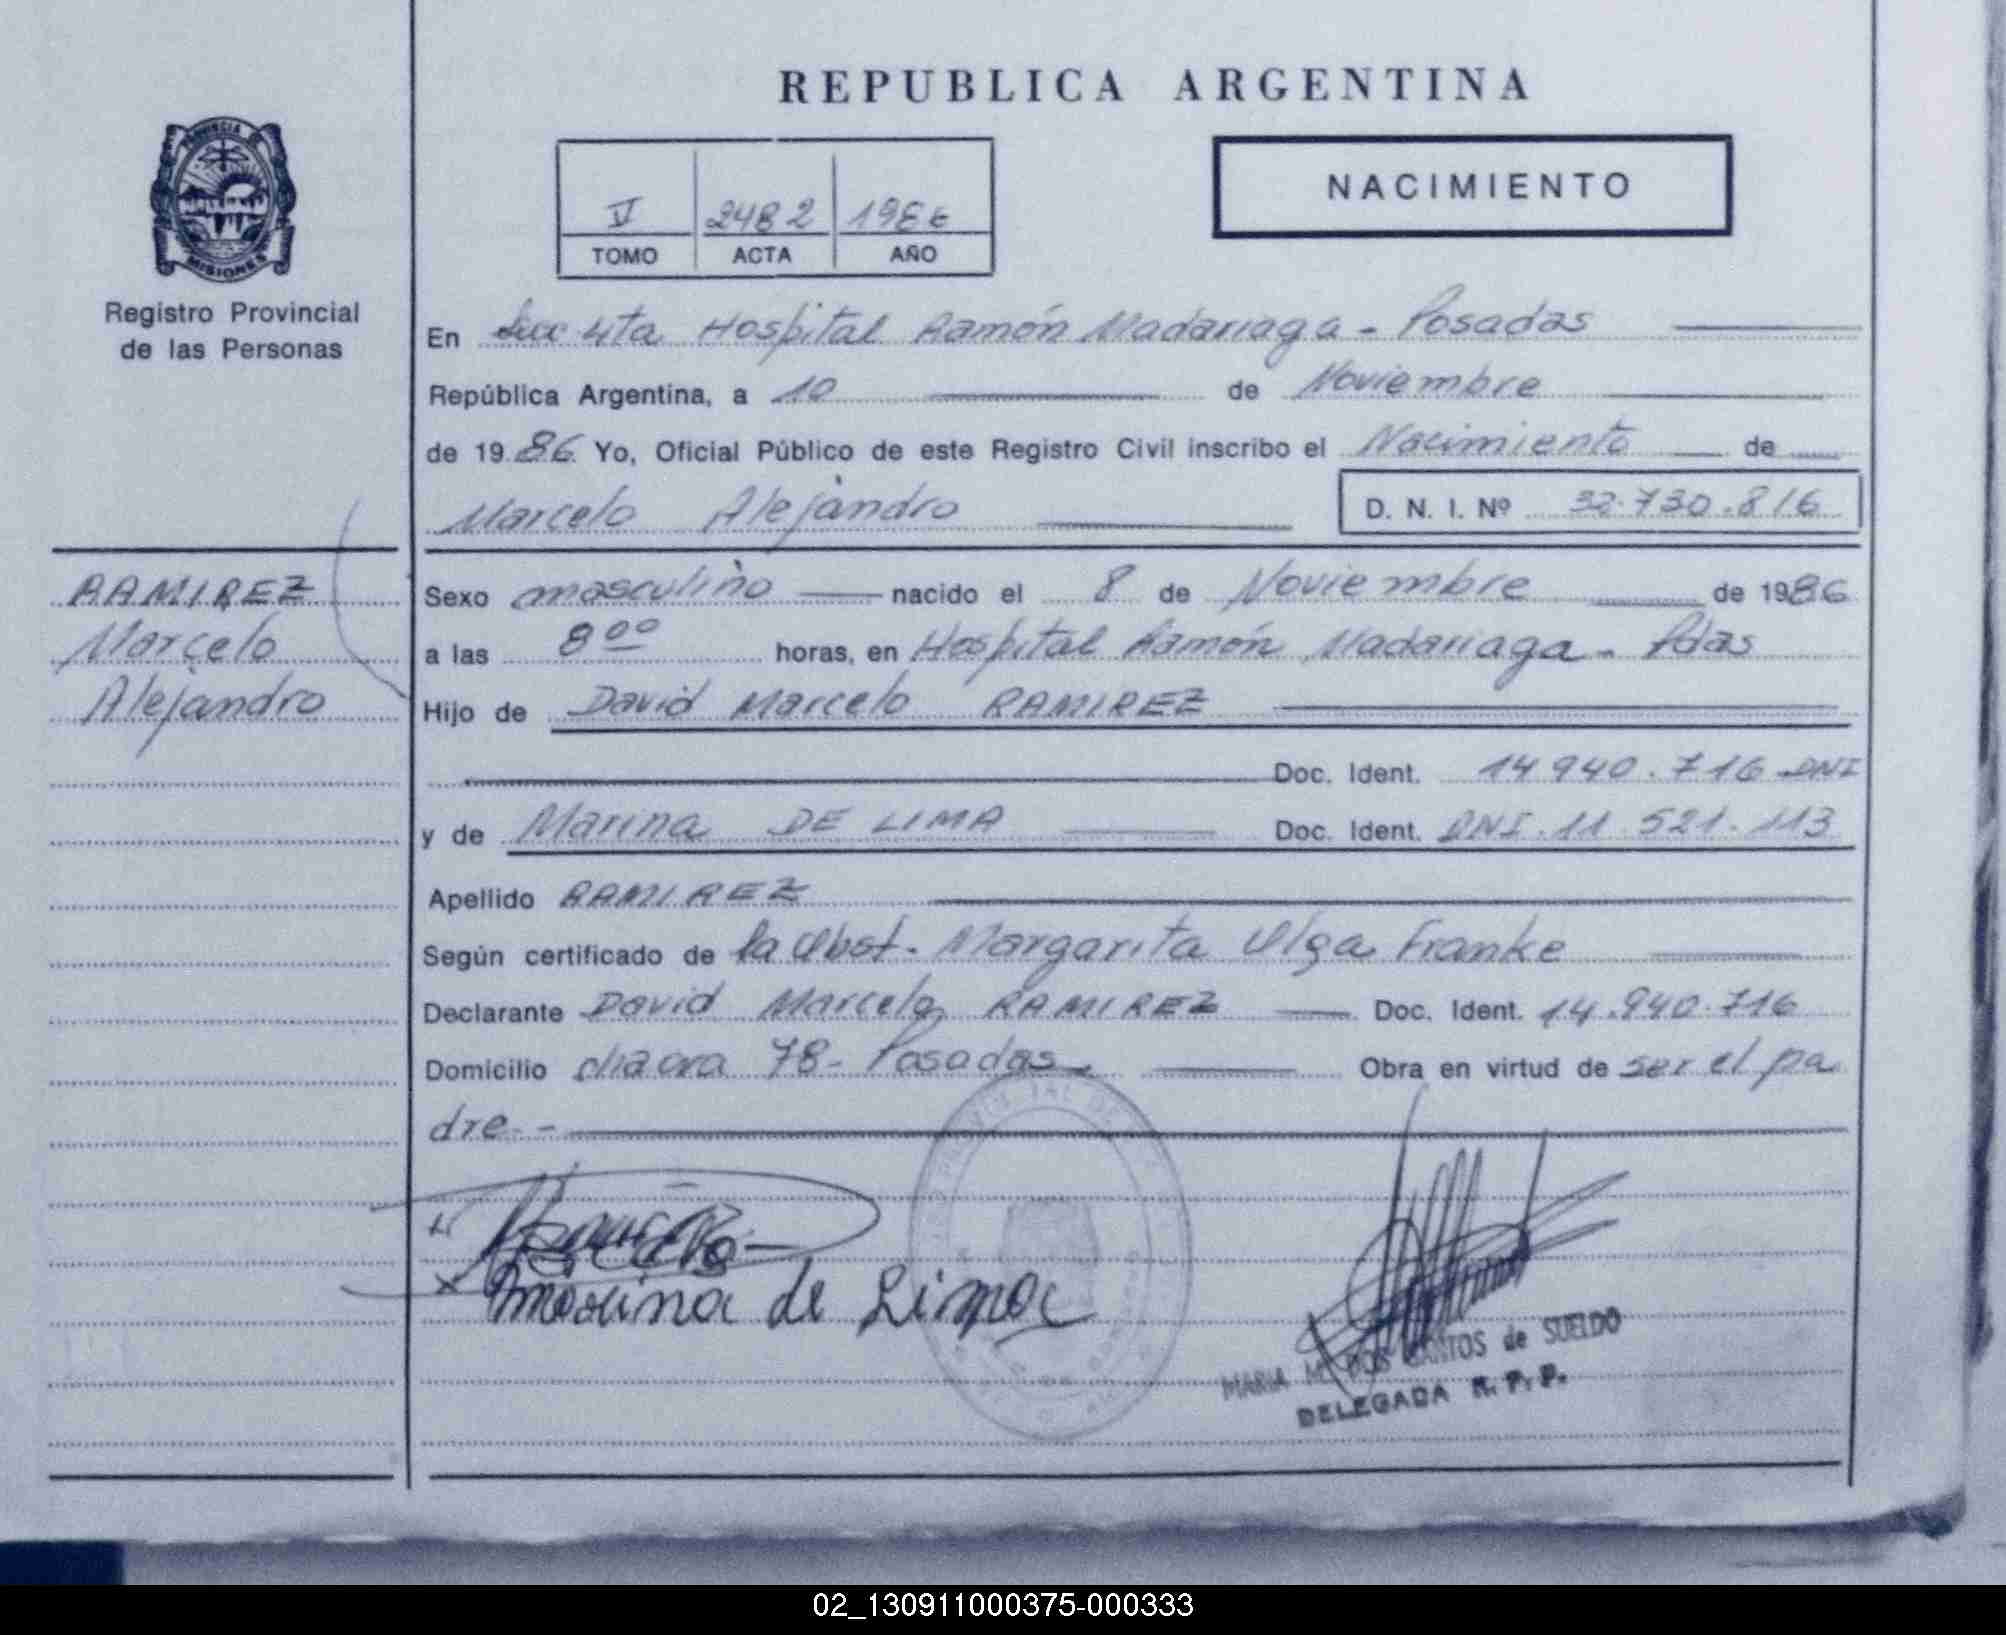 REPUBLICA ARGENTINA
PROVINCIA DE
MISIONES
Registro Provincial
de las Personas
V 2482 1986
TOMO ACTA AÑO
NACIMIENTO
En Secc 4ta Hospital Ramón Madariaga - Posadas
República Argentina, a 10 de Noviembre
de 19 86 Yo, Oficial Público de este Registro Civil inscribo el Nacimiento de
Marcelo Alejandro D. N. I. Nº 32.730.816
RAMIREZ
Marcelo
Alejandro
Sexo masculino nacido el 8 de Noviembre de 1986
a las 8 00 horas, en Hospital Ramón Madariaga - Pdas
Hijo de David Marcelo RAMIREZ
Doc. Ident. 14 940.716 DNI
y de Marina DE LIMA Doc. Ident. DNI. 11 521.113
Apellido RAMIREZ
Según certificado de la Obst. Margarita Olga Franke
Declarante David Marcelo RAMIREZ Doc. Ident. 14.940.716
Domicilio chacra 78 - Posadas Obra en virtud de ser el pa
dre - -
marina de Lima
MARIA M. DOS SANTOS de SUELDO
DELEGADA R. P. P.
02_130911000375-000333